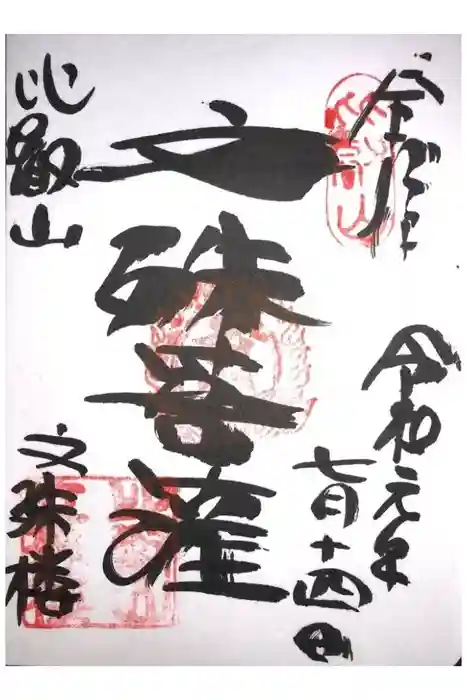 令和元年
七月十四日
文殊菩薩
比叡山
文殊楼